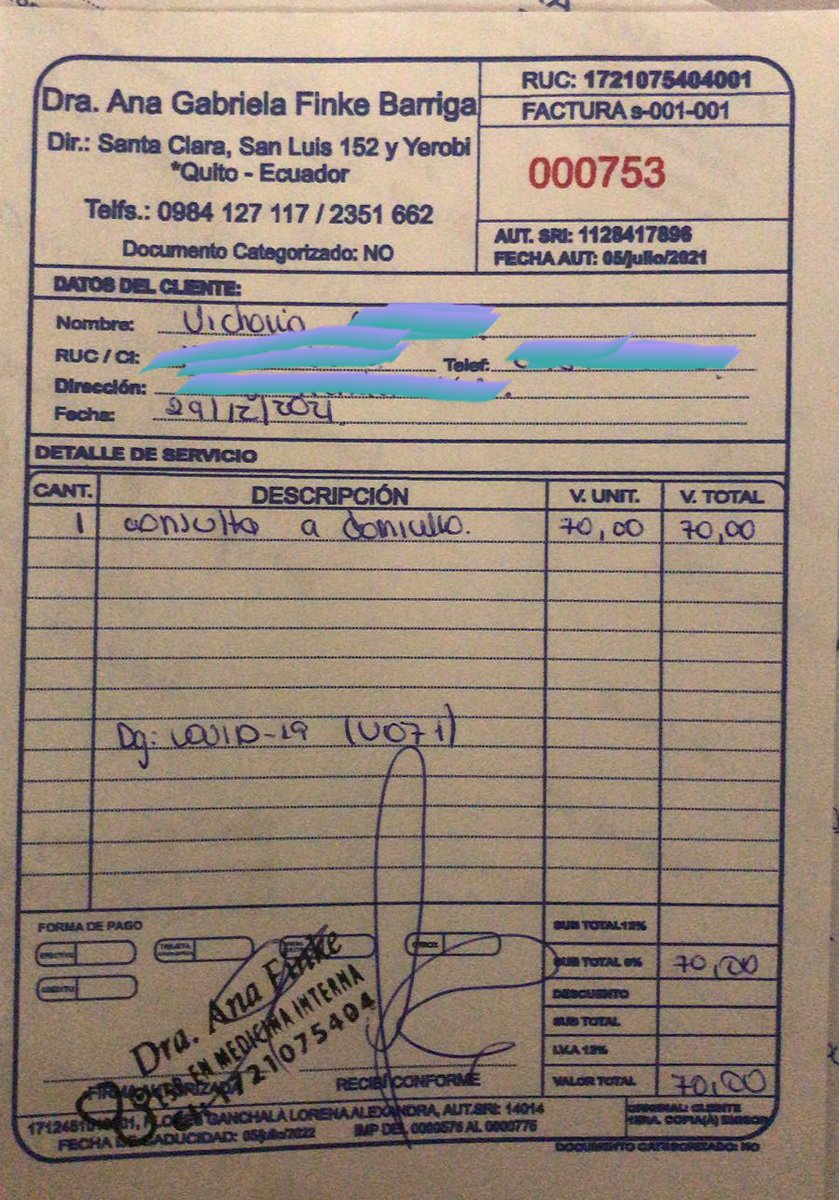 Dra. Ana Gabriela Finke Barriga
Dir.: Santa Clara, San Luis 152 y Yerobi
*Quito - Ecuador
Telfs.: 0984 127 117 / 2351 662
Documento Categorizado: NO
RUC: 1721075404001
FACTURA s-001-001
000753
AUT. SRI: 1128417896
FECHA AUT: 05/julio/2021
DATOS DEL CLIENTE:
Nombre: Victoria
RUC / CI: Telef:
Dirección:
Fecha: 29/12/2021
DETALLE DE SERVICIO
CANT. DESCRIPCIÓN V. UNIT. V. TOTAL
1 consulta a domicilio. 70,00 70,00
Dg: COVID-19 (U071)
FORMA DE PAGO
EFECTIVO TARJETA OTROS
CRÉDITO
SUB TOTAL 12%
SUB TOTAL 0% 70,00
DESCUENTO
SUB TOTAL
I.V.A 12%
VALOR TOTAL 70,00
Dra. Ana Finke
ESP. EN MEDICINA INTERNA
1721075404
FIRMA AUTORIZADA RECIBÍ CONFORME
GANCHALA LORENA ALEXANDRA, AUT.SRI: 14014
FECHA DE CADUCIDAD: 05/julio/2022 IMP DEL 0000576 AL 0000776
ORIGINAL: CLIENTE
1ERA. COPIA(A) EMISOR
DOCUMENTO CATEGORIZADO: NO